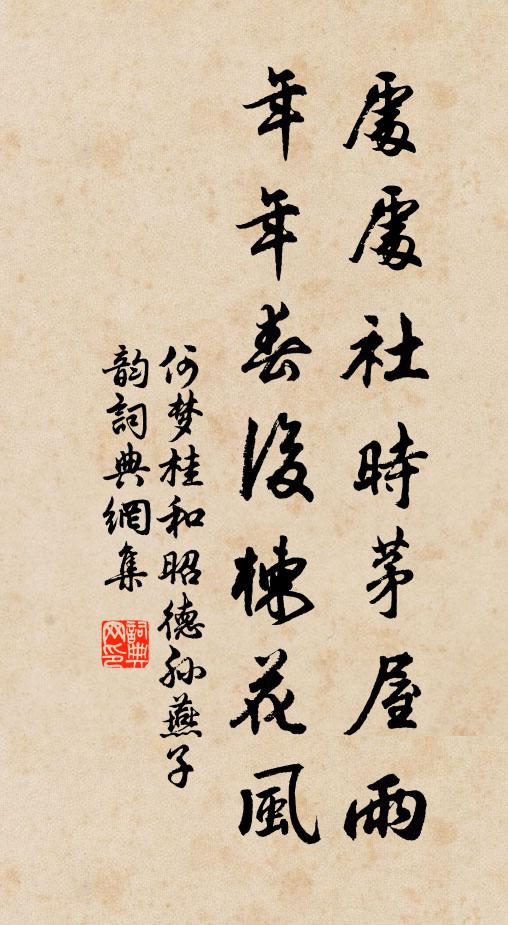 處處社時茅屋雨
年年春後楝花風
何梦桂和昭德孙燕子
韵詞典網集
詞典
网印